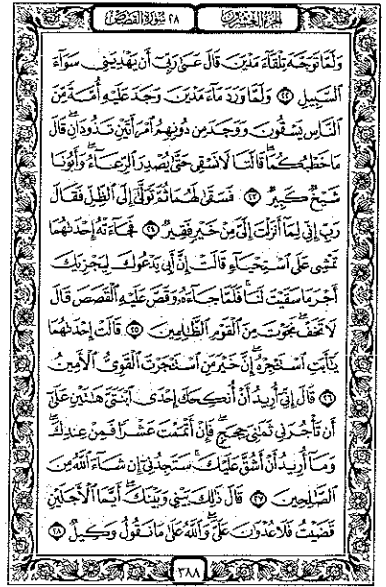 الجزء العشرون ٢٨ سورة القصص
وَلَمَّا تَوَجَّهَ تِلْقَآءَ مَدْيَنَ قَالَ عَسَىٰ رَبِّىٓ أَن يَهْدِيَنِى سَوَآءَ
ٱلسَّبِيلِ ٢٢ وَلَمَّا وَرَدَ مَآءَ مَدْيَنَ وَجَدَ عَلَيْهِ أُمَّةً مِّنَ
ٱلنَّاسِ يَسْقُونَ وَوَجَدَ مِن دُونِهِمُ ٱمْرَأَتَيْنِ تَذُودَانِ ۖ قَالَ
مَا خَطْبُكُمَا ۖ قَالَتَا لَا نَسْقِى حَتَّىٰ يُصْدِرَ ٱلرِّعَآءُ ۖ وَأَبُونَا
شَيْخٌ كَبِيرٌ ٢٣ فَسَقَىٰ لَهُمَا ثُمَّ تَوَلَّىٰٓ إِلَى ٱلظِّلِّ فَقَالَ
رَبِّ إِنِّى لِمَآ أَنزَلْتَ إِلَىَّ مِنْ خَيْرٍ فَقِيرٌ ٢٤ فَجَآءَتْهُ إِحْدَىٰهُمَا
تَمْشِى عَلَى ٱسْتِحْيَآءٍ قَالَتْ إِنَّ أَبِى يَدْعُوكَ لِيَجْزِيَكَ
أَجْرَ مَا سَقَيْتَ لَنَا ۚ فَلَمَّا جَآءَهُۥ وَقَصَّ عَلَيْهِ ٱلْقَصَصَ قَالَ
لَا تَخَفْ ۖ نَجَوْتَ مِنَ ٱلْقَوْمِ ٱلظَّـٰلِمِينَ ٢٥ قَالَتْ إِحْدَىٰهُمَا
يَـٰٓأَبَتِ ٱسْتَـْٔجِرْهُ ۖ إِنَّ خَيْرَ مَنِ ٱسْتَـْٔجَرْتَ ٱلْقَوِىُّ ٱلْأَمِينُ
٢٦ قَالَ إِنِّىٓ أُرِيدُ أَنْ أُنكِحَكَ إِحْدَى ٱبْنَتَىَّ هَـٰتَيْنِ عَلَىٰٓ
أَن تَأْجُرَنِى ثَمَـٰنِىَ حِجَجٍ ۖ فَإِنْ أَتْمَمْتَ عَشْرًا فَمِنْ عِندِكَ ۖ
وَمَآ أُرِيدُ أَنْ أَشُقَّ عَلَيْكَ ۚ سَتَجِدُنِىٓ إِن شَآءَ ٱللَّهُ مِنَ
ٱلصَّـٰلِحِينَ ٢٧ قَالَ ذَٰلِكَ بَيْنِى وَبَيْنَكَ ۖ أَيَّمَا ٱلْأَجَلَيْنِ
قَضَيْتُ فَلَا عُدْوَٰنَ عَلَىَّ ۖ وَٱللَّهُ عَلَىٰ مَا نَقُولُ وَكِيلٌ ٢٨
٣٨٨